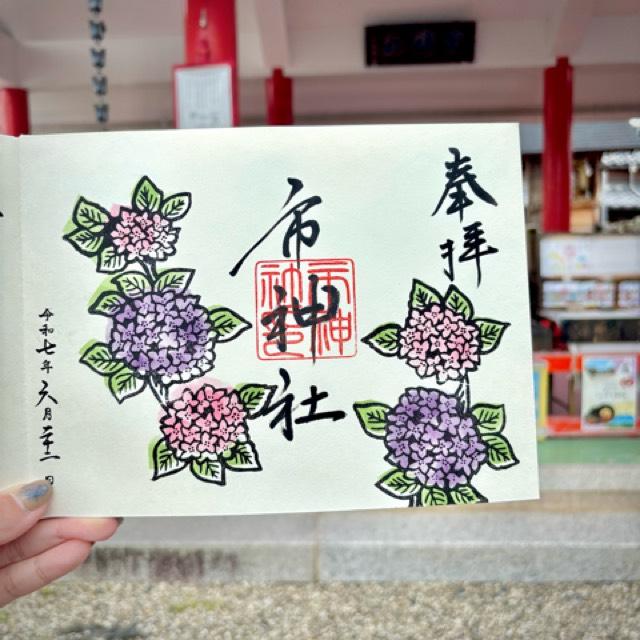 奉拝
市神社
市神社之印
令和七年六月二十二日